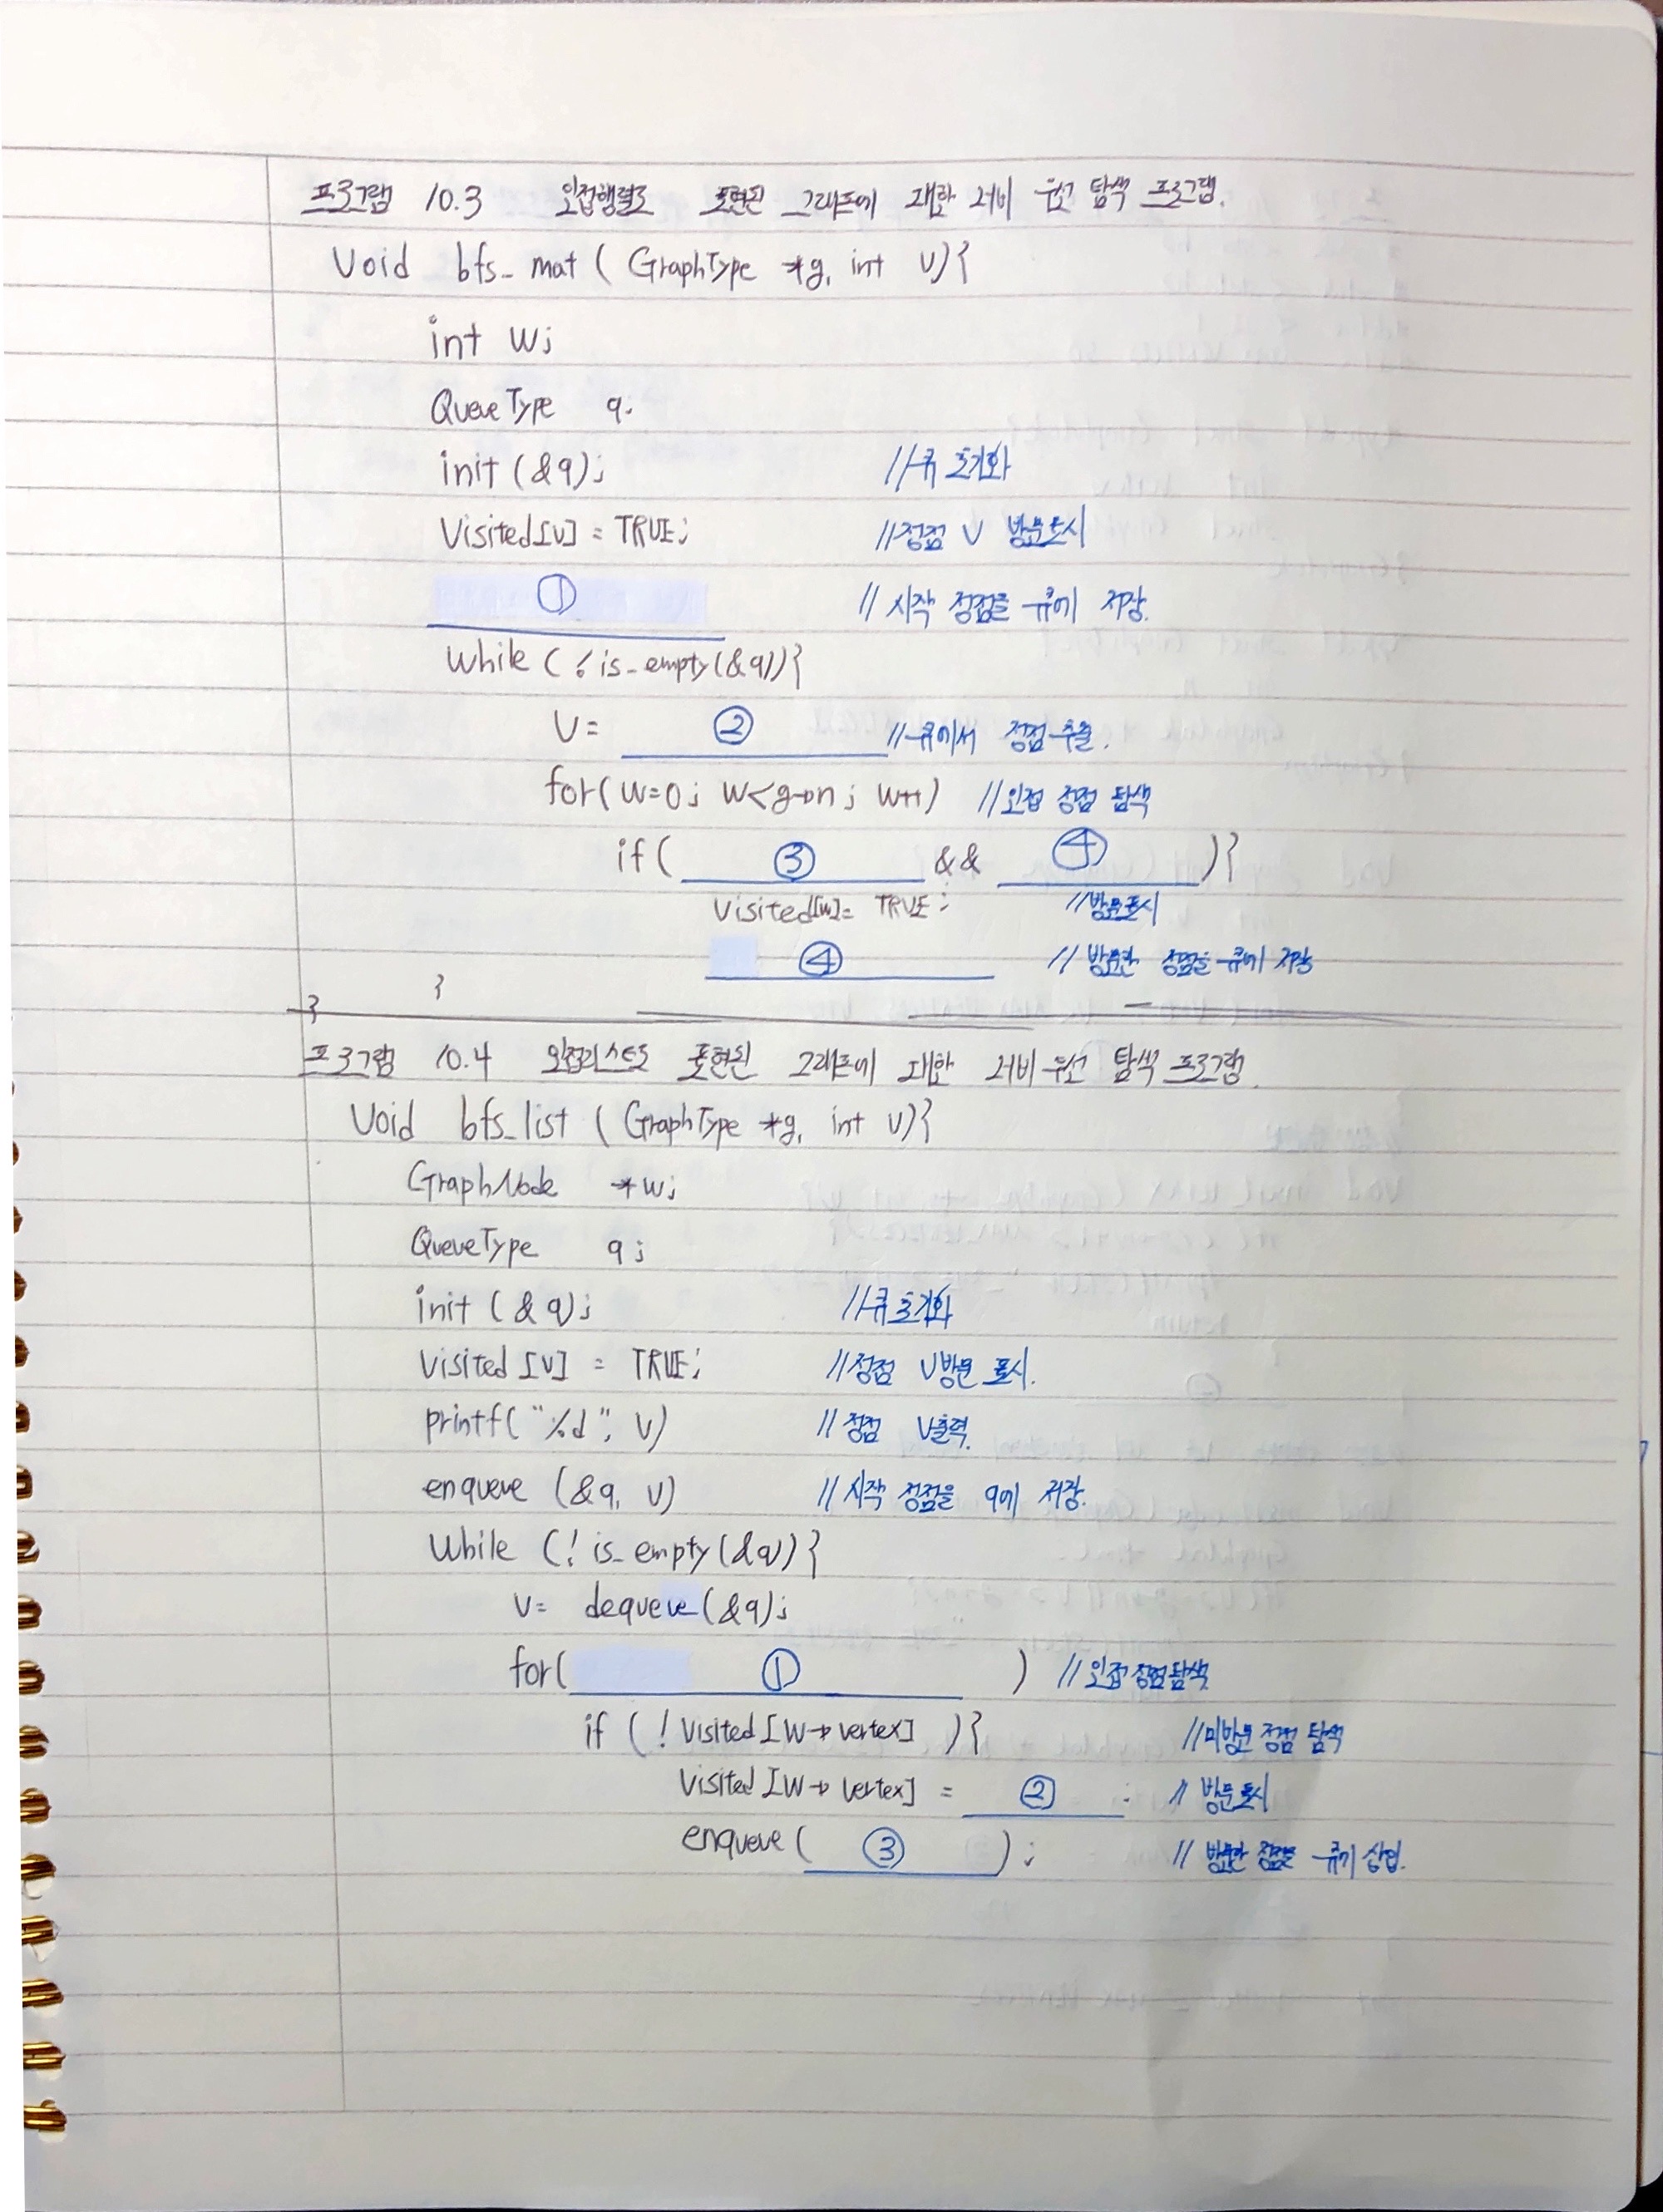 프로그램 10.3 인접행렬로 표현된 그래프에 대한 너비 우선 탐색 프로그램.
Void bfs_mat ( GraphType *g, int v){
int w;
QueueType q;
init (&q); //큐 초기화
Visited[v] = TRUE; //정점 v 방문표시
① // 시작 정점을 큐에 저장.
While ( ! is_empty(&q)){
v= ② //큐에서 정점 추출.
for( w=0; w<g→n; w++) //인접 정점 탐색
if( ③ && ④ ){
Visited[w]= TRUE; //방문표시
④ // 방문한 정점을 큐에 저장
}
}
프로그램 10.4 인접리스트로 표현된 그래프에 대한 너비 우선 탐색 프로그램.
Void bfs_list ( GraphType *g, int v){
GraphNode *w;
QueueType q;
init ( & q); //큐 초기화
Visited [v] = TRUE; //정점 v방문 표시.
printf( "%d", v) // 정점 v출력.
enqueue (&q, v) // 시작 정점을 q에 저장.
While (! is_empty(&q)){
v= dequeue(&q);
for( ① ) // 인접 정점 탐색
if ( ! Visited [w→vertex] ){ //미방문 정점 탐색
Visited [w→vertex] = ② ; // 방문표시
enqueue( ③ ); // 방문한 정점을 큐에 삽입.